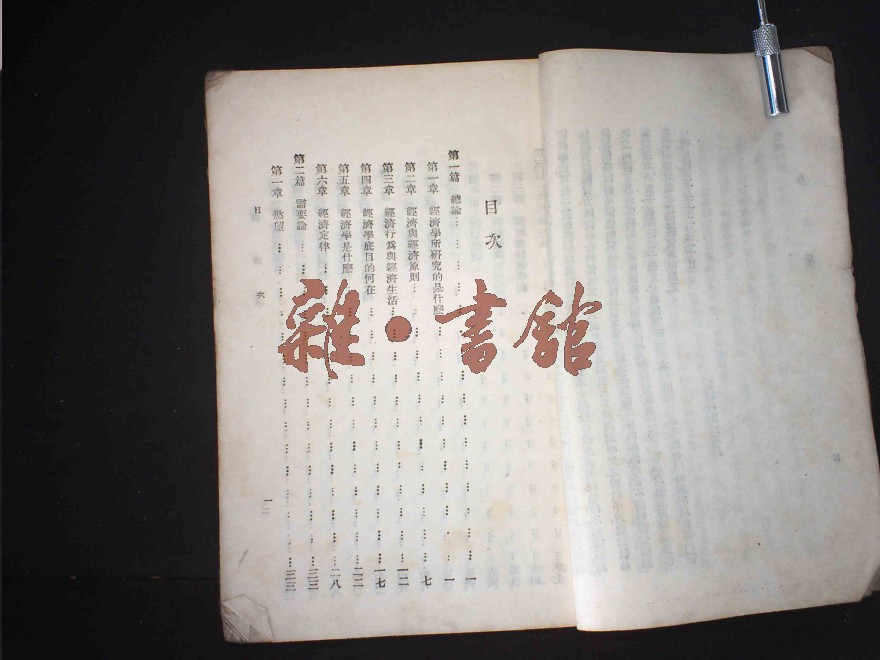 目次
第一篇 總論 一
第一章 經濟學所研究的是什麼 一
第二章 經濟與經濟原則 七
第三章 經濟行爲與經濟生活 一二
第四章 經濟學底目的何在 一七
第五章 經濟學是什麼 二二
第六章 經濟定律 二八
第二篇 需要論 三三
第一章 慾望 三三
目次
一
雜·書館